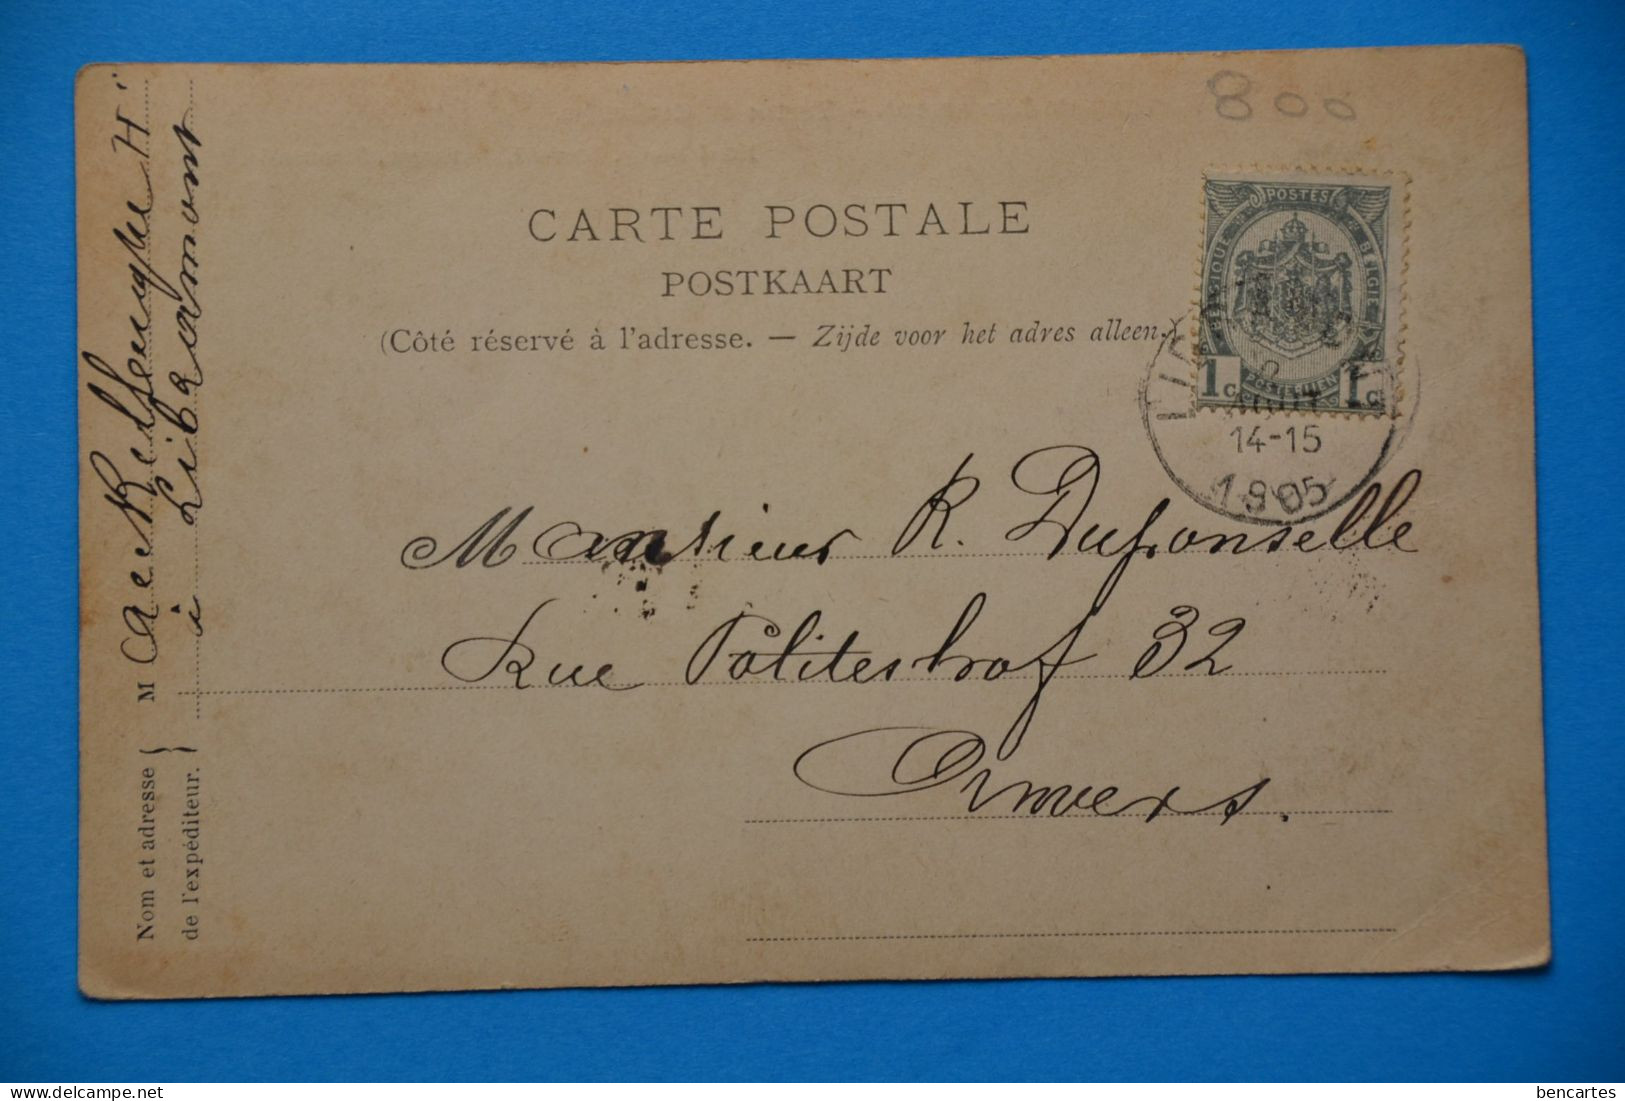 800
CARTE POSTALE
POSTKAART
(Côté réservé à l'adresse. — Zijde voor het adres alleen.)
POSTES
BELGIQUE BELGIE
POSTERIJEN
1c 1c
AOUT
14-15
1905
Monsieur R. Duponselle
Rue Politestraf 32
Anvers.
Nom et adresse
de l'expéditeur.
M
à Libramont
bencartes